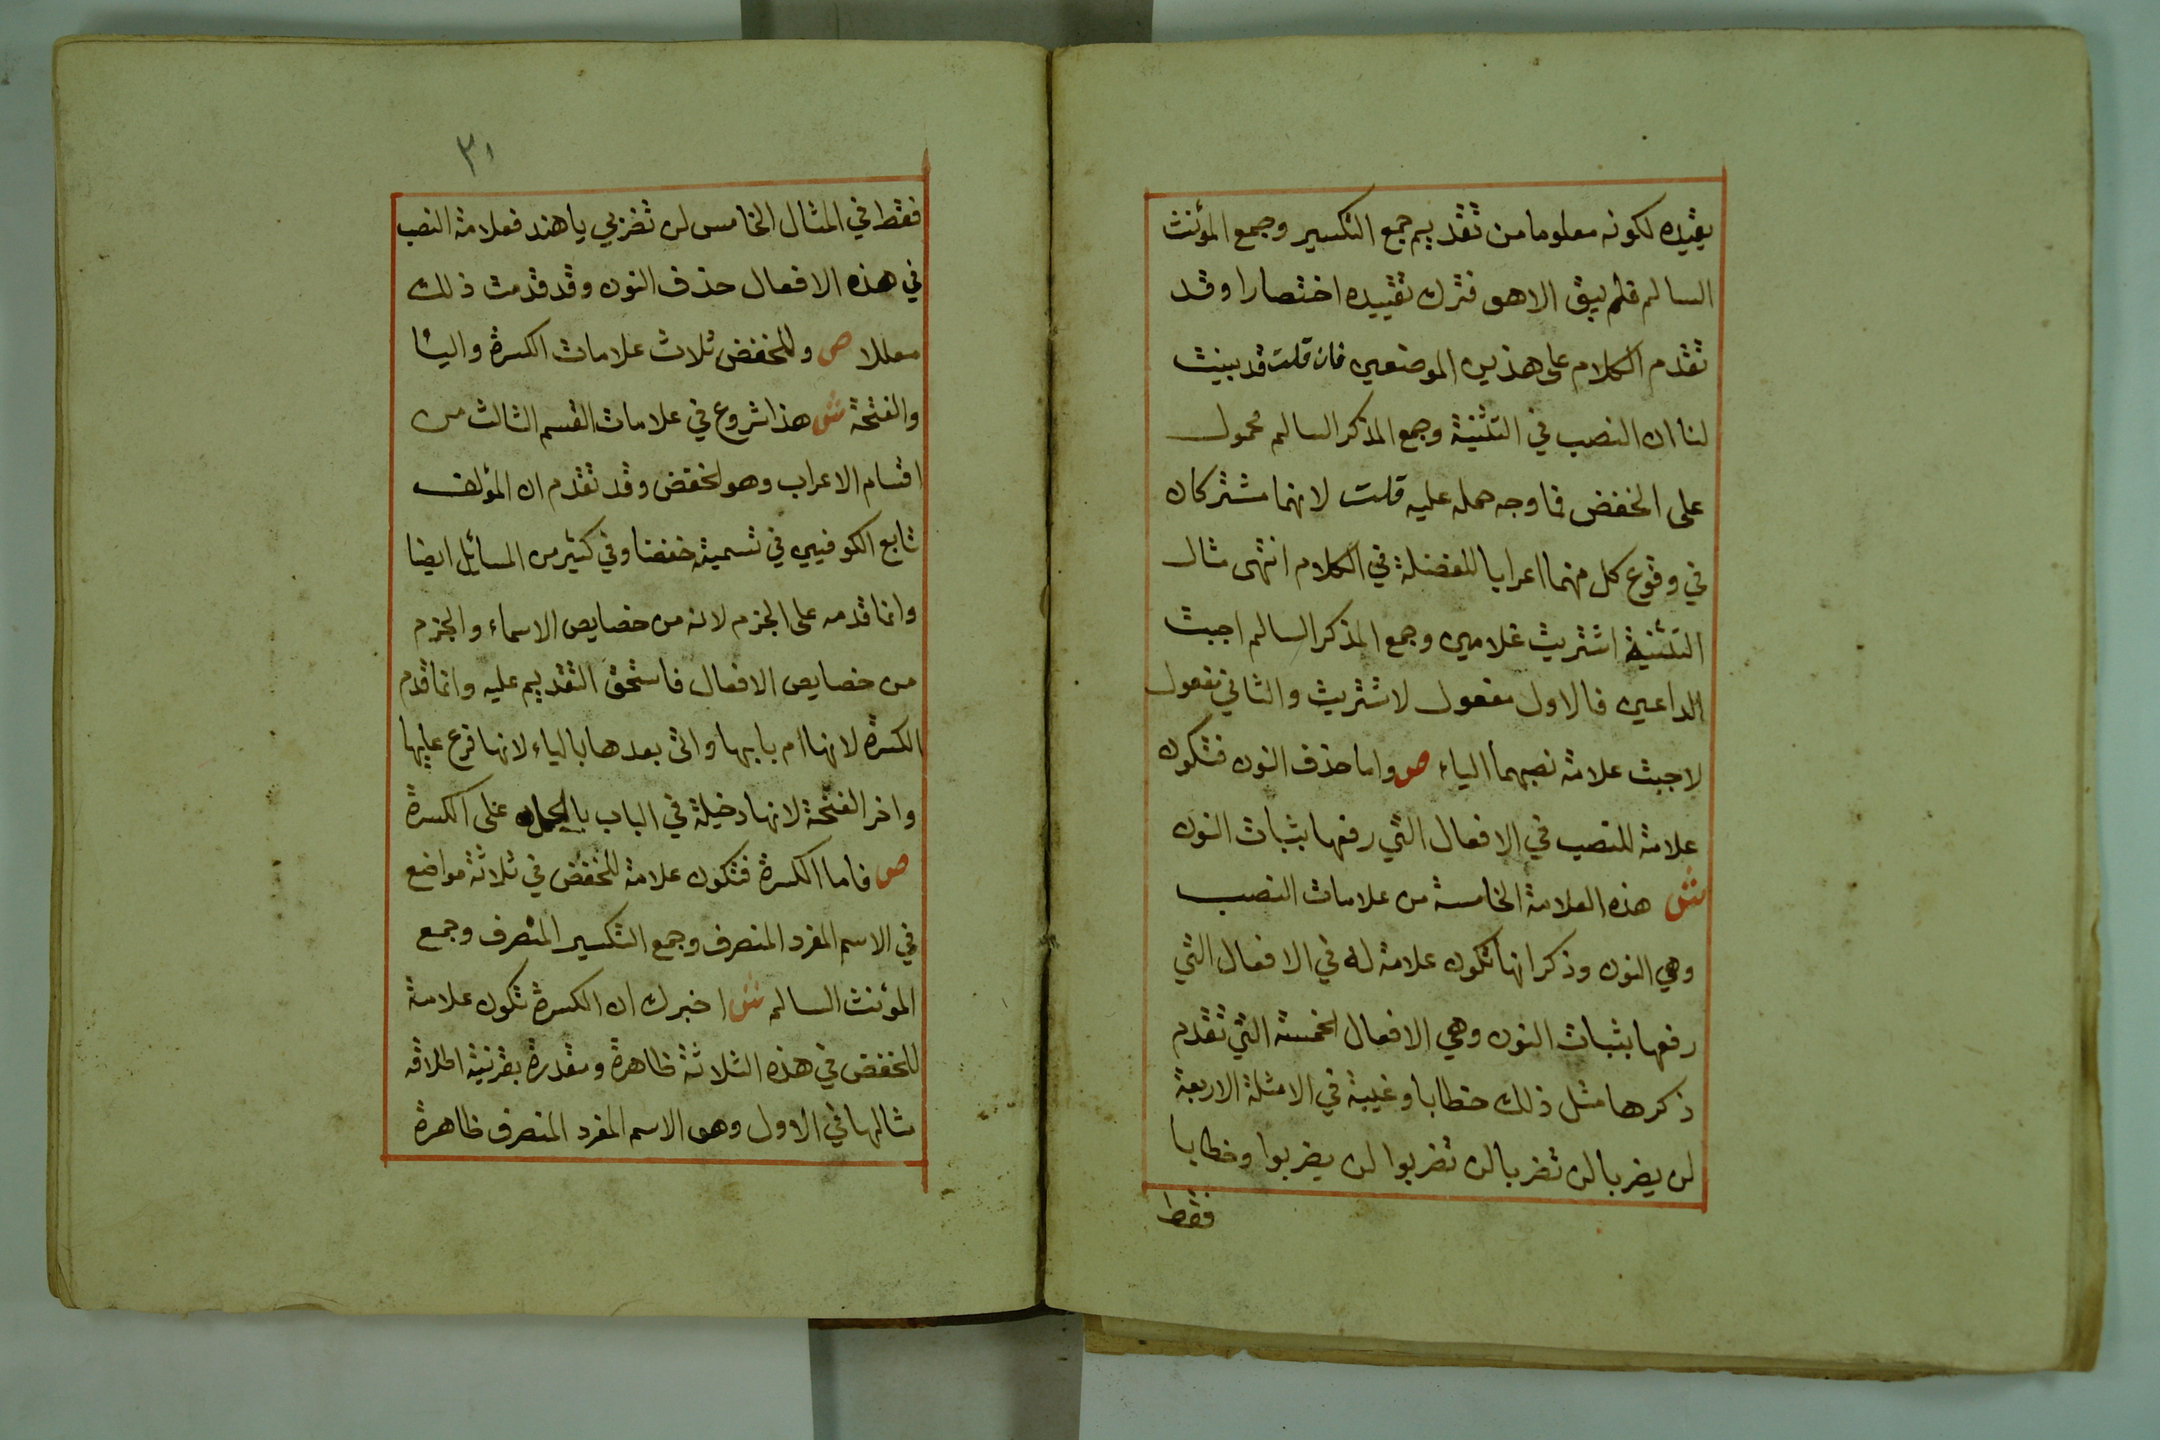 يقيده لكونه معلوما من تقديم جمع التكسير وجمع المؤنث
السالم فلم يبق الا هو فترك تقييده اختصارا وقد
تقدم الكلام على هذين الموضعين فان قلت قد بينت
لنا ان النصب في التثنية وجمع المذكر السالم محمول
على الخفض فما وجه حمله عليه قلت لانهما مشتركان
في وقوع كل منهما اعرابا للفضلة في الكلام انتهى مثال
التثنية اشتريت غلامين وجمع المذكر السالم اجبت
الداعين فالاول مفعول لاشتريت والثاني مفعول
لاجبت علامة نصبهما الياء ص واما حذف النون فتكون
علامة للنصب في الافعال التي رفعها بثبات النون
ش هذه العلامة الخامسة من علامات النصب
وهي النون وذكر انها تكون علامة له في الافعال التي
رفعها بثبات النون وهي الافعال الخمسة التي تقدم
ذكرها مثل ذلك خطابا وغيبة في الامثلة الاربعة
لن يضربا لن تضربا لن تضربوا لن يضربوا وخطابا
فقط
٣١
فقط في المثال الخامس لن تضربي يا هند فعلامة النصب
في هذه الافعال حذف النون وقد قدمت ذلك
معللا ص وللخفض ثلاث علامات الكسرة واليا
والفتحة ش هذا شروع في علامات القسم الثالث من
اقسام الاعراب وهو الخفض وقد تقدم ان المؤلف
تابع الكوفيين في تسميته خفضا وفي كثير من المسائل ايضا
وانما قدمه على الجزم لانه من خصايص الاسماء والجزم
من خصايص الافعال فاستحق التقديم عليه وانما قدم
الكسرة لانها ام بابها واتى بعدها بالياء لانها فرع عليها
واخر الفتحة لانها دخيلة في الباب بالحمل على الكسرة
ص فاما الكسرة فتكون علامة للخفض في ثلاثة مواضع
في الاسم المفرد المنصرف وجمع التكسير المنصرف وجمع
المؤنث السالم ش اخبرك ان الكسرة تكون علامة
للخفض في هذه الثلاثة ظاهرة ومقدرة بقرنية اطلاقه
مثالها في الاول وهو الاسم المفرد المنصرف ظاهرة